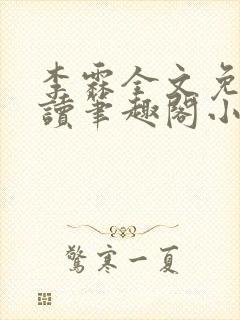 李霖全文免
讀筆趣閣小
驚寒一夏